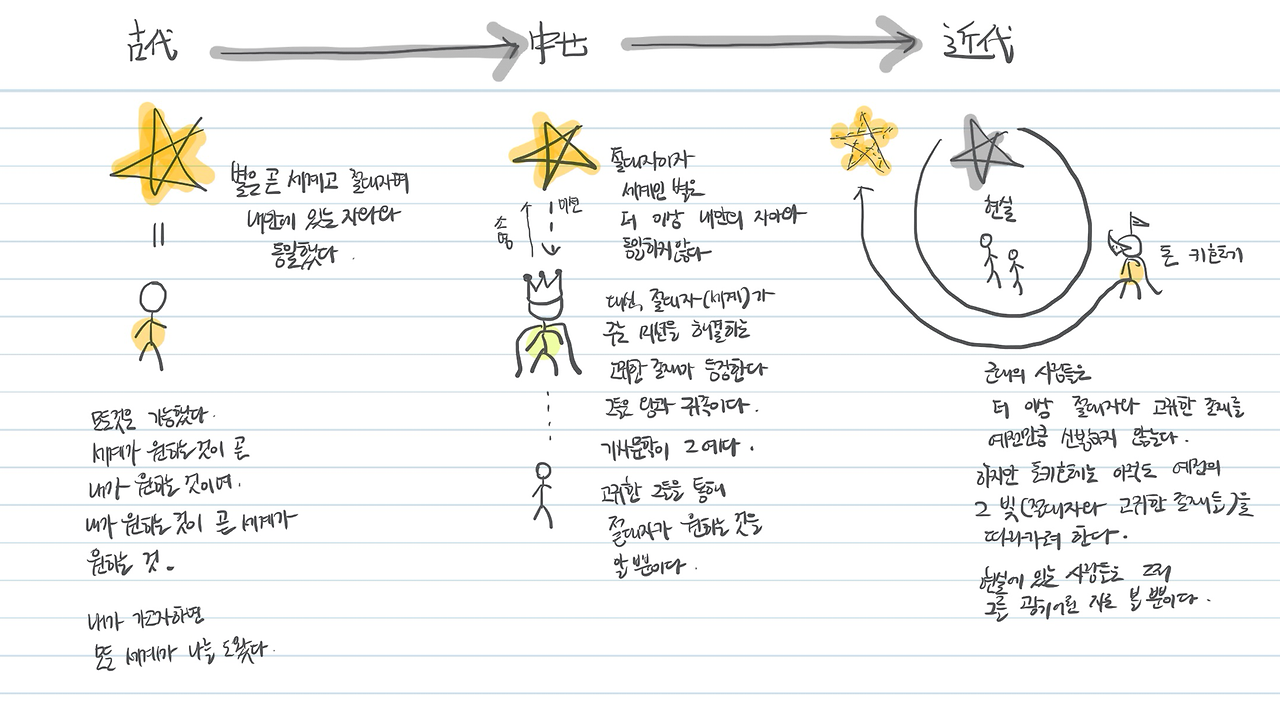 古代
中世
近代
별은 곧 세계고 절대자며
내안에 있는 자아와
동일했다.
모든것은 가능했다.
세계가 원하는것이 곧
내가 원하는 것이며.
내가 원하는 것이 곧 세계가
원하는 것.
내가 가고자하면
모든 세계가 나를 도왔다.
소명
미션
절대자이자
세계인 별은
더 이상 내안의 자아와
동일하지 않다
대신, 절대자(세계)가
주는 미션을 해결하는
고귀한 존재가 등장한다
그들은 왕과 귀족이다.
기사문학이 그 예다.
고귀한 그들을 통해
절대자가 원하는 것을
알 뿐이다.
현실
돈 키호테
근대의 사람들은
더 이상 절대자와 고귀한 존재를
예전만큼 신봉하지 않는다.
하지만 돈키호테는 아직도 예전의
그 빛(절대자와 고귀한 존재들)을
따라가려 한다.
현실에 있는 사람들은 그저
그를 광기어린 자로 볼 뿐이다.